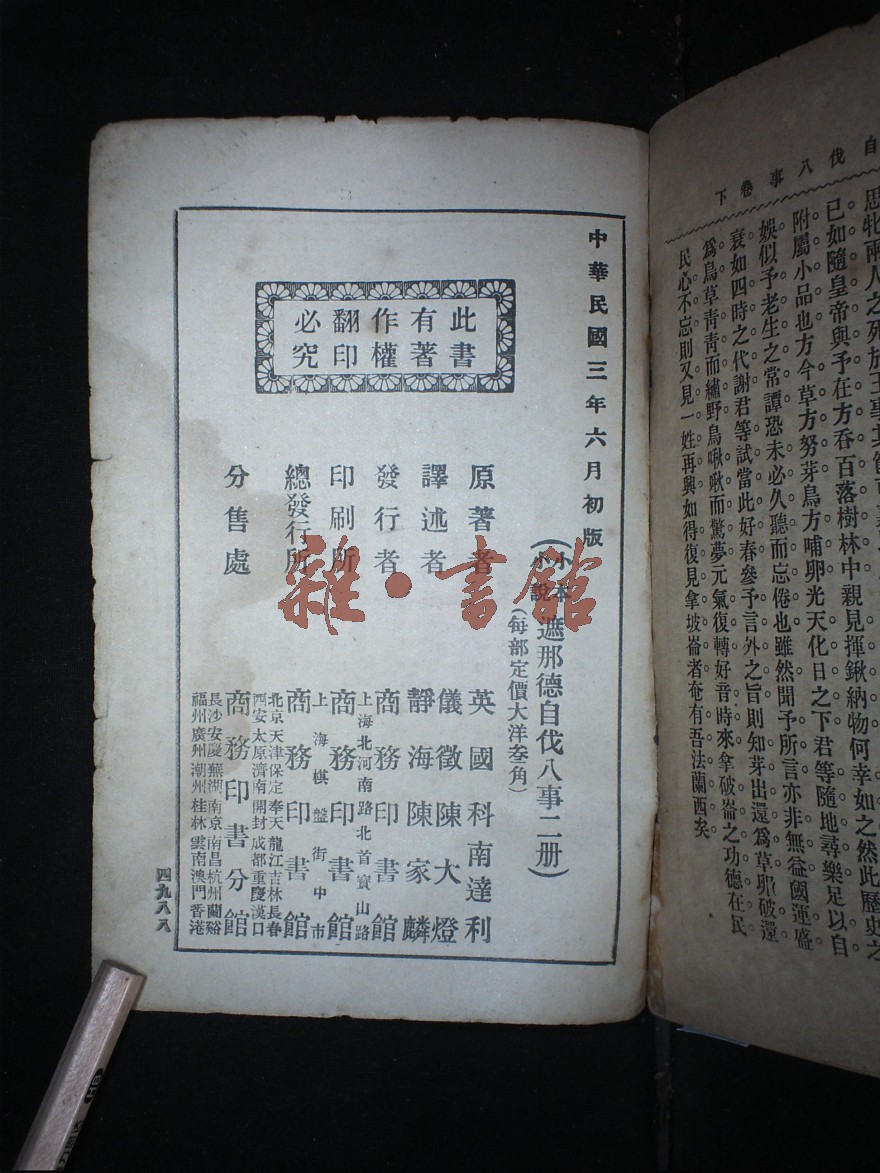 自伐八事卷下
思牝兩人之死於王事其
已如隨皇帝與予在方吞百落樹林中親見揮鍬納物何幸如之然此歷史之
附屬小品也方今草方努芽鳥方哺卵光天化日之下君等隨地尋樂足以自
娛似予老生之常譚恐未必久聽而忘倦也雖然聞予所言亦非無益國運盛
衰如四時之代謝君等試當此好春參予言外之旨則知芽出還爲草卵破還
爲鳥草青青而繡野鳥啾啾而驚夢元氣復轉好音時來拿破崙之功德在民
民心不忘則又見一姓再興如得復見拿坡崙者奄有吾法蘭西矣
中華民國三年六月初版
(小本小說)遮那德自伐八事二册)
(每部定價大洋叁角)
此書
有著
作權
翻印
必究
原著者 英國科南達利
譯述者 儀徵陳大燈
靜海陳家麟
發行者 商務印書館
上海北河南路北首寶山路
印刷所 商務印書館
上海棋盤街中市
總發行所 商務印書館
北京天津保定奉天龍江吉林長春
西安太原濟南開封成都重慶漢口
分售處 商務印書分館
長沙安慶蕪湖南京南昌杭州蘭谿
福州廣州潮州桂林雲南澳門香港
四九八八
雜·書館
HB